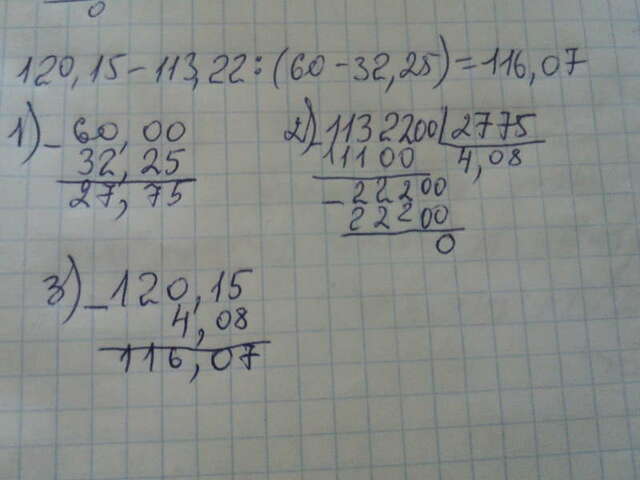 0
120,15-113,22:(60-32,25)=116,07
1) - 60,00
32,25
27,75
2) - 1132200 2775
11100 4,08
- 22200
22200
0
3) - 120,15
4,08
116,07